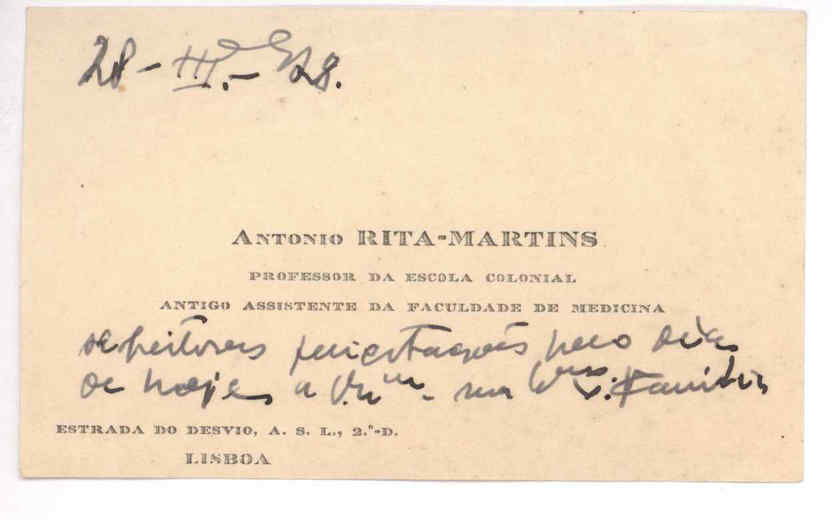 28-III.-928.
ANTONIO RITA-MARTINS
PROFESSOR DA ESCOLA COLONIAL
ANTIGO ASSISTENTE DA FACULDADE DE MEDICINA
felicitações pelo dia
de hoje a Familia
ESTRADA DO DESVIO, A. S. L., 2.º-D.
LISBOA